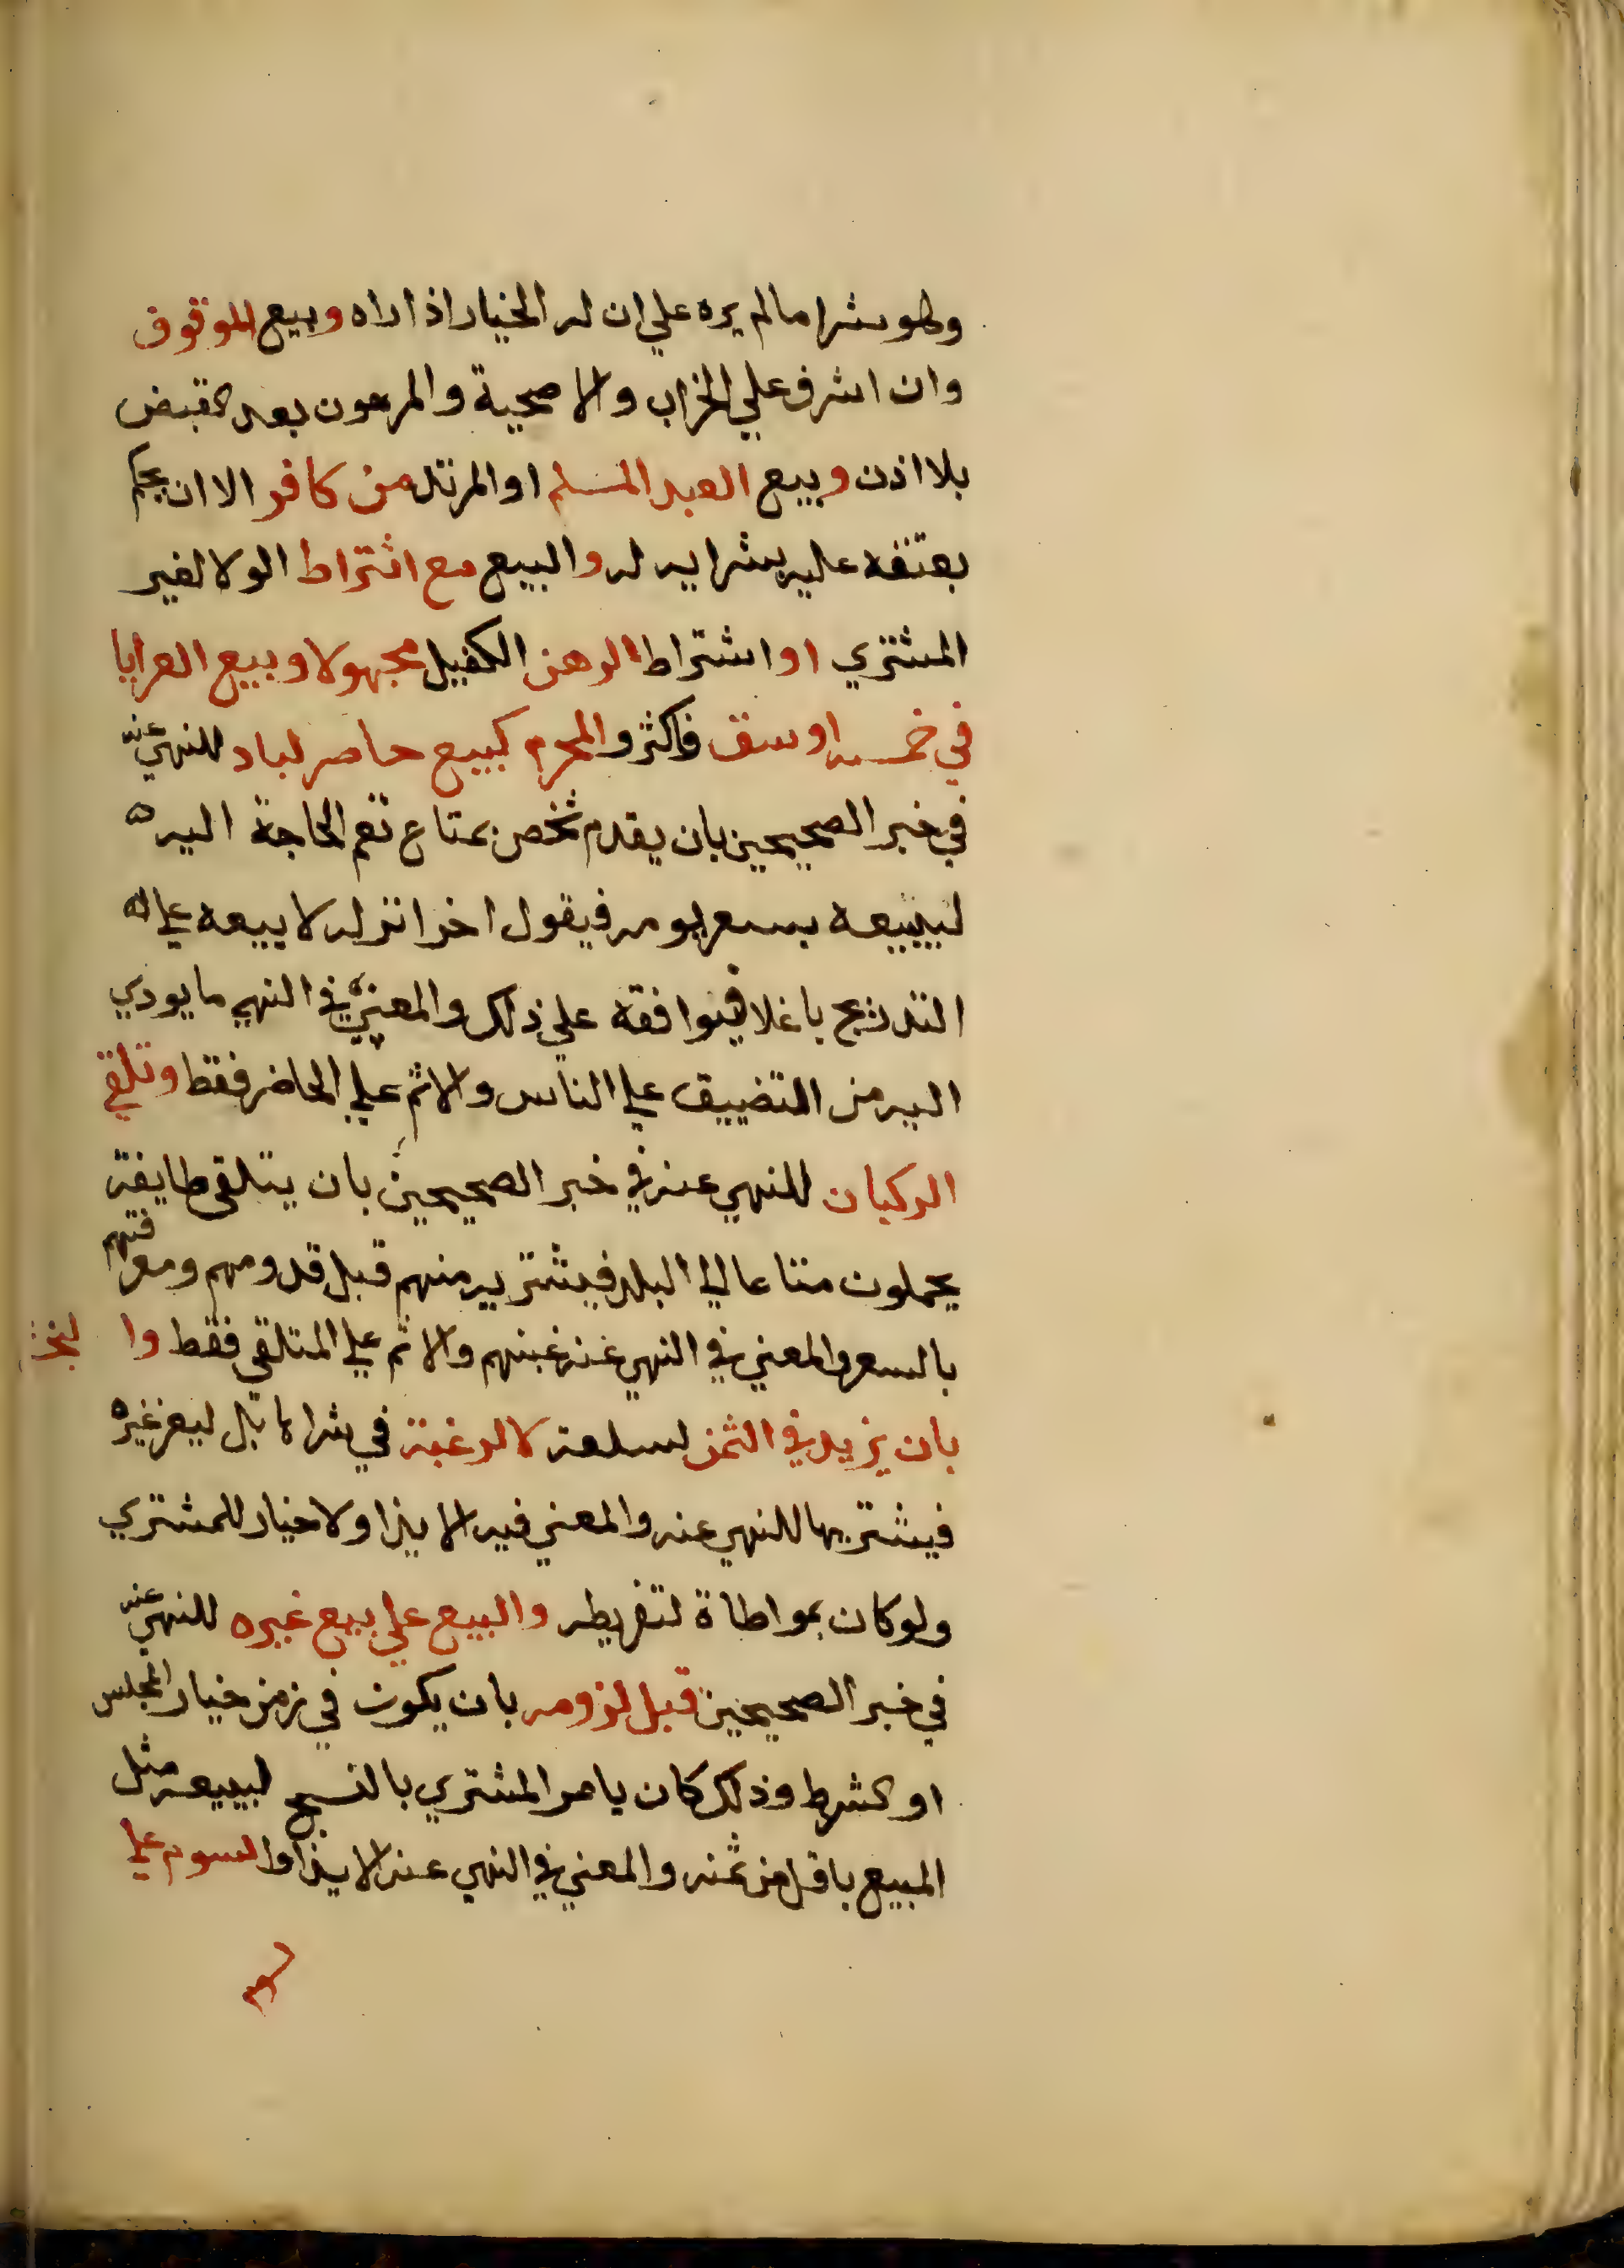 وهو شرا مالم يره علي ان له الخيار اذا راه وبيع الموقوف
وان اشرف علي الخراب والاضحية والمرهون بعد قبض
بلا اذن وبيع العبد المسلم او المرتد من كافر الا ان يحكم
بعتقه عليه بشرايه له والبيع مع اشتراط الولا لغير
المشتري او اشتراط الرهن الكفيل مجهولا وبيع العرايا
في خمسه اوسق فاكثر والمحرم كبيع حاضر لباد للنهي عنه
في خبر الصحيحين بان يقدم شخص بمتاع تعم الحاجة اليه
ليبيعه بسعر يومه فيقول اخر اتركه لا بيعه علي
التدريج باغلا فيوافقه علي ذلك والمعني في النهي ما يودي
اليه من التضييق علي الناس والاثم علي الحاضر فقط وتلقي
الركبان للنهي عنه في خبر الصحيحين بان يتلقى طايفة
يحملون متاعا الي البلد فيشتريه منهم قبل قدومهم ومعرفتهم
بالسعر والمعني في النهي عنه غبنهم والاثم علي المتلقي فقط والنجش
بان يزيد في الثمن لسلعة لا لرغبة في شراها بل ليغر غيره
فيشتريها للنهي عنه والمعني فيه الايذا ولا خيار للمشتري
ولو كان بمواطاة لتفريطه والبيع علي بيع غيره للنهي عنه
في خبر الصحيحين قبل لزومه بان يكون في زمن خيار المجلس
او الشرط وذلك كان يامر المشتري بالفسخ ليبيعه مثل
المبيع باقل من ثمنه والمعني في النهي عنه الايذا والسوم علي